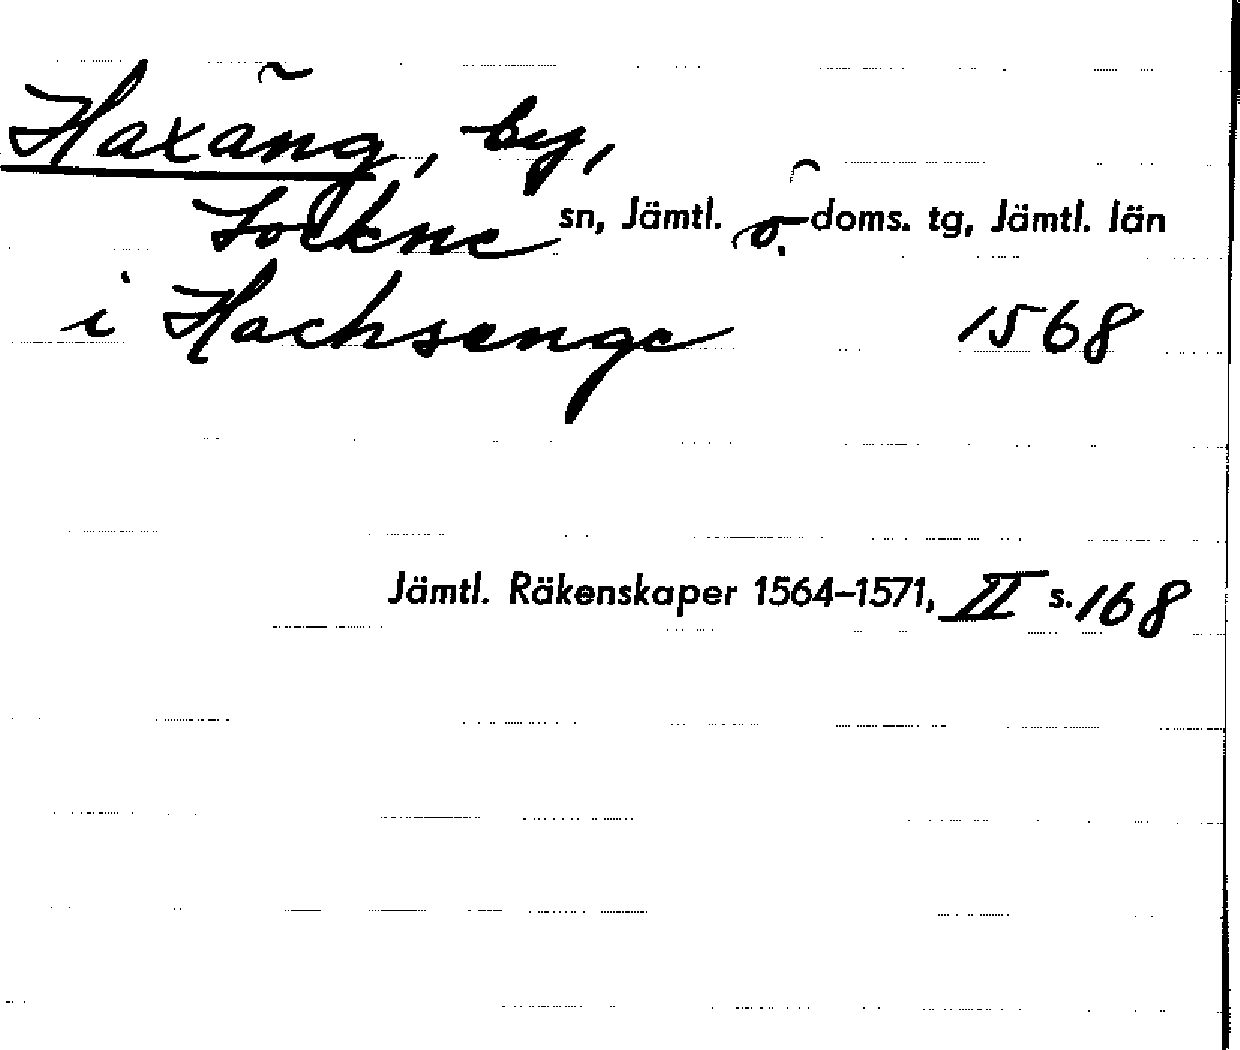 Haxäng, by,
Lockne sn, Jämtl. ö. doms. tg, Jämtl. län
i Hachsenge 1568
Jämtl. Räkenskaper 1564–1571, II s. 168